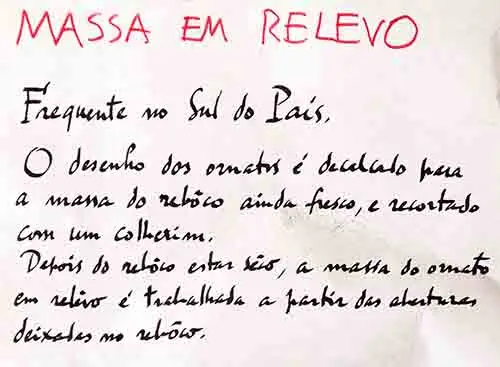 MASSA EM RELEVO
Frequente no Sul do País.
O desenho dos ornatos é decalcado para
a massa do rebôco ainda fresco, e recortado
com um colherim.
Depois do rebôco estar sêco, a massa do ornato
em relêvo é trabalhada a partir das aberturas
deixadas no rebôco.